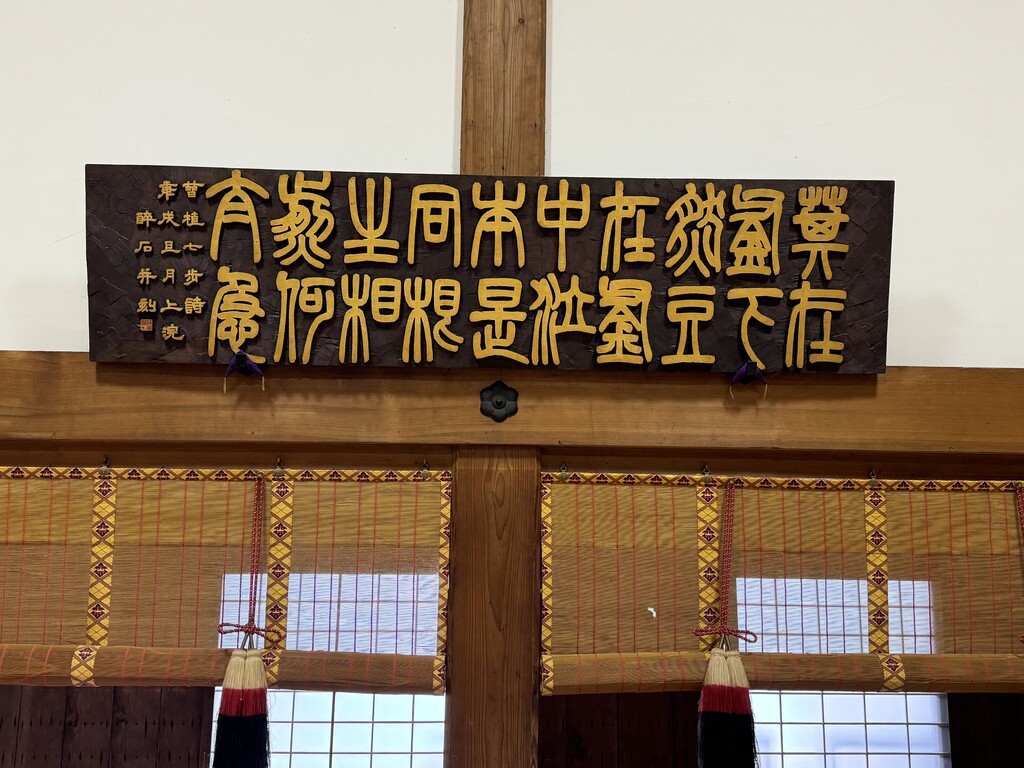 萁在
釜下
然豆
在釜
中泣
本是
同根
生相
煎何
太急
曹植七步詩
庚戌且月上浣
醉石并刻